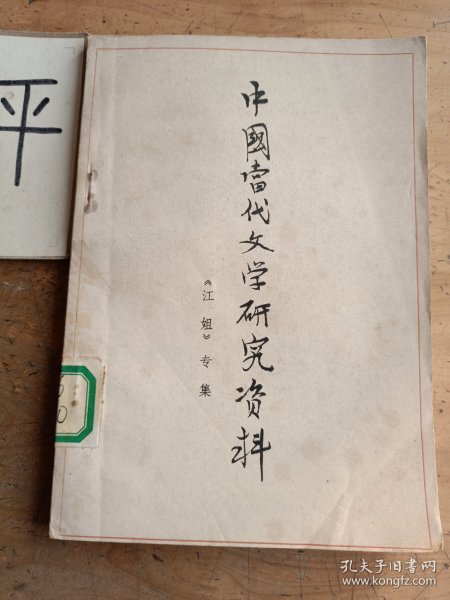 中國當代文学研究资料
《江姐》专集
平
孔夫子旧书网
www.kongfz.com